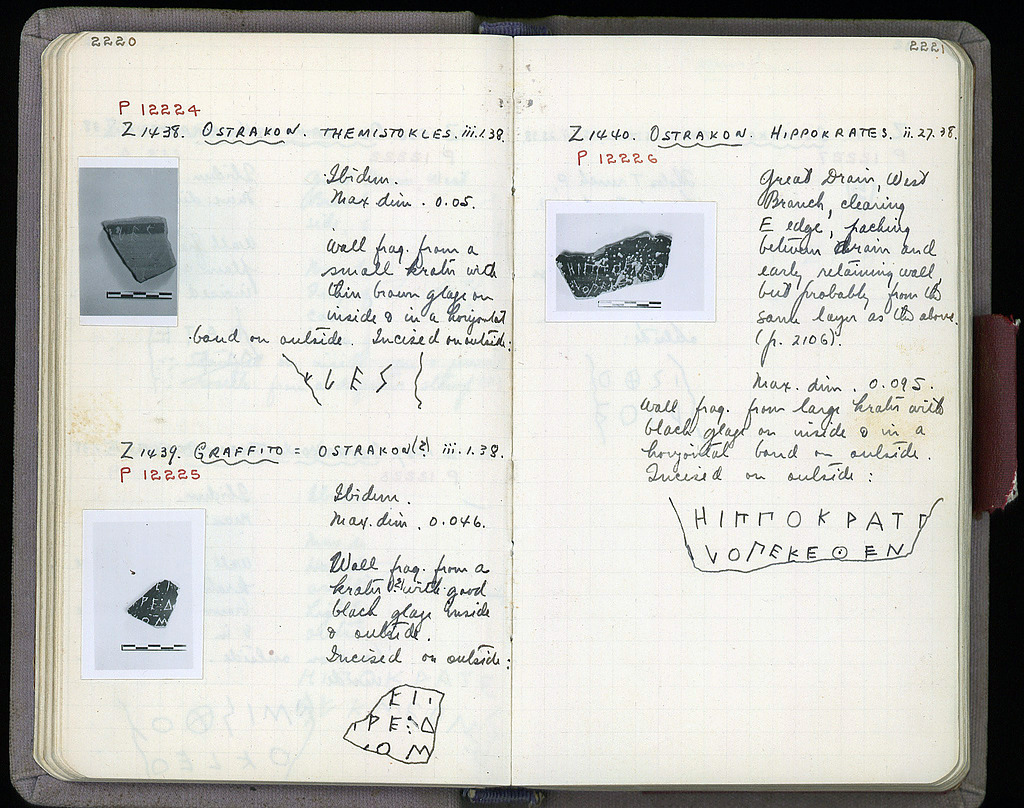 2220
P 12224
Z 1438. OSTRAKON. THEMISTOKLES. iii.1.38.
Ibidem.
Max. dim. 0.05.
Wall frag. from a
small krater with
thin brown glaze on
inside & in a horizontal
band on outside. Incised on outside:
KLES
Z 1439. GRAFFITO = OSTRAKON(?) iii.1.38.
P 12225
Ibidem.
Max. dim. 0.046.
Wall frag. from a
krater (?) with good
black glaze inside
& outside.
Incised on outside:
ΡΕ:Δ
ΟΜ
2221
Z 1440. OSTRAKON. HIPPOKRATES. ii.27.38.
P 12226
Great Drain, West
Branch, clearing
E edge, packing
between drain and
early retaining wall,
but probably from the
same layer as the above.
(p. 2106).
Max. dim. 0.095.
Wall frag. from large krater with
black glaze on inside & in a
horizontal band on outside.
Incised on outside:
ΗΙΠΠΟΚΡΑΤ
ΟΠΕΚΕΘΕΝ